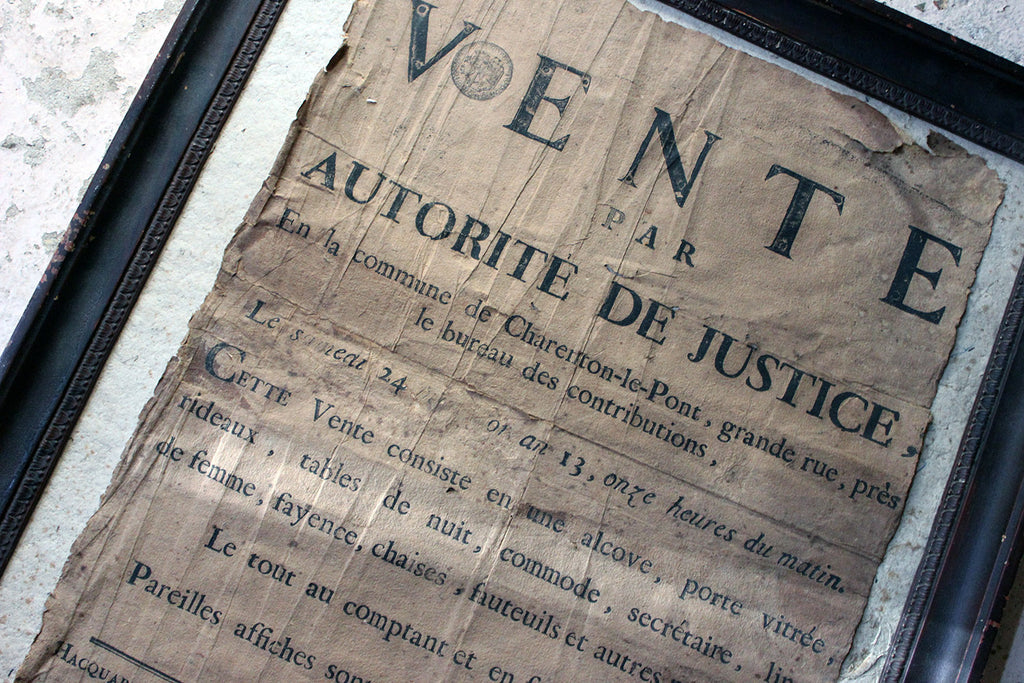 VENTE
PAR
AUTORITE DE JUSTICE,
En la commune de Charenton-le-Pont, grande rue, près
le bureau des contributions,
Le 24 an 13, onze heures du matin.
CETTE Vente consiste en une alcove, porte vitrée,
rideaux, tables de nuit, commode, secrétaire,
de femme, fayence, chaises, fauteuils et autres
Le tout au comptant et en
Pareilles affiches